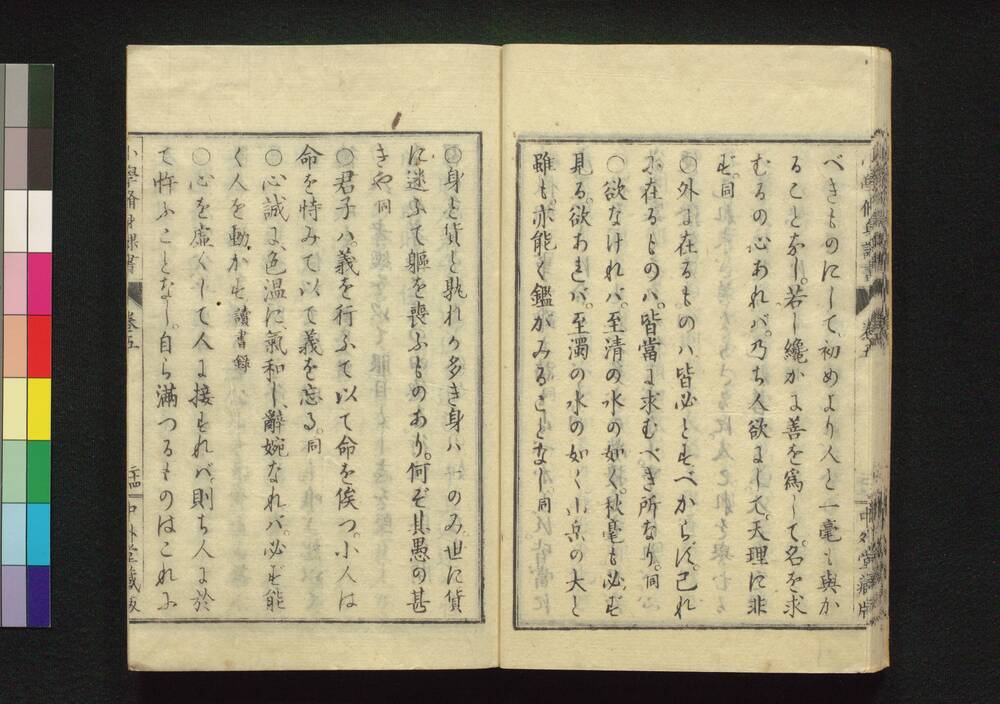 べきものにして、初めより人と一毫も與か
ることなし。若し纔かに善を爲して、名を求
むるの心あれバ、乃ち人欲にして、天理に非
ず。同
〇外に在るものハ、皆必とすべからず。己れ
に在るものハ、皆當に求むべき所なり。同
〇欲なけれバ、至清の水の如く、秋毫も必ず
見る。欲あれバ、至濁の水の如く、山岳の大と
雖も、亦能く鑑がみることなし 同
中外堂藏版
〇身と貨と孰れか多き身ハ一のみ。世に貨
に迷ふて軀を喪ふものあり。何ぞ其愚の甚
きや 同
〇君子ハ、義を行ふて以て命を俟つ。小人は
命を恃みて以て義を忘る。同
〇心誠に、色温に、氣和し辭婉なれバ、必ず能
く人を動かす 讀書録
〇心を虚くして人に接すれバ、則ち人に於
て忤ふことなし。自ら滿つるものはこれに
小學脩身課書
卷五
二十四
中外堂藏版